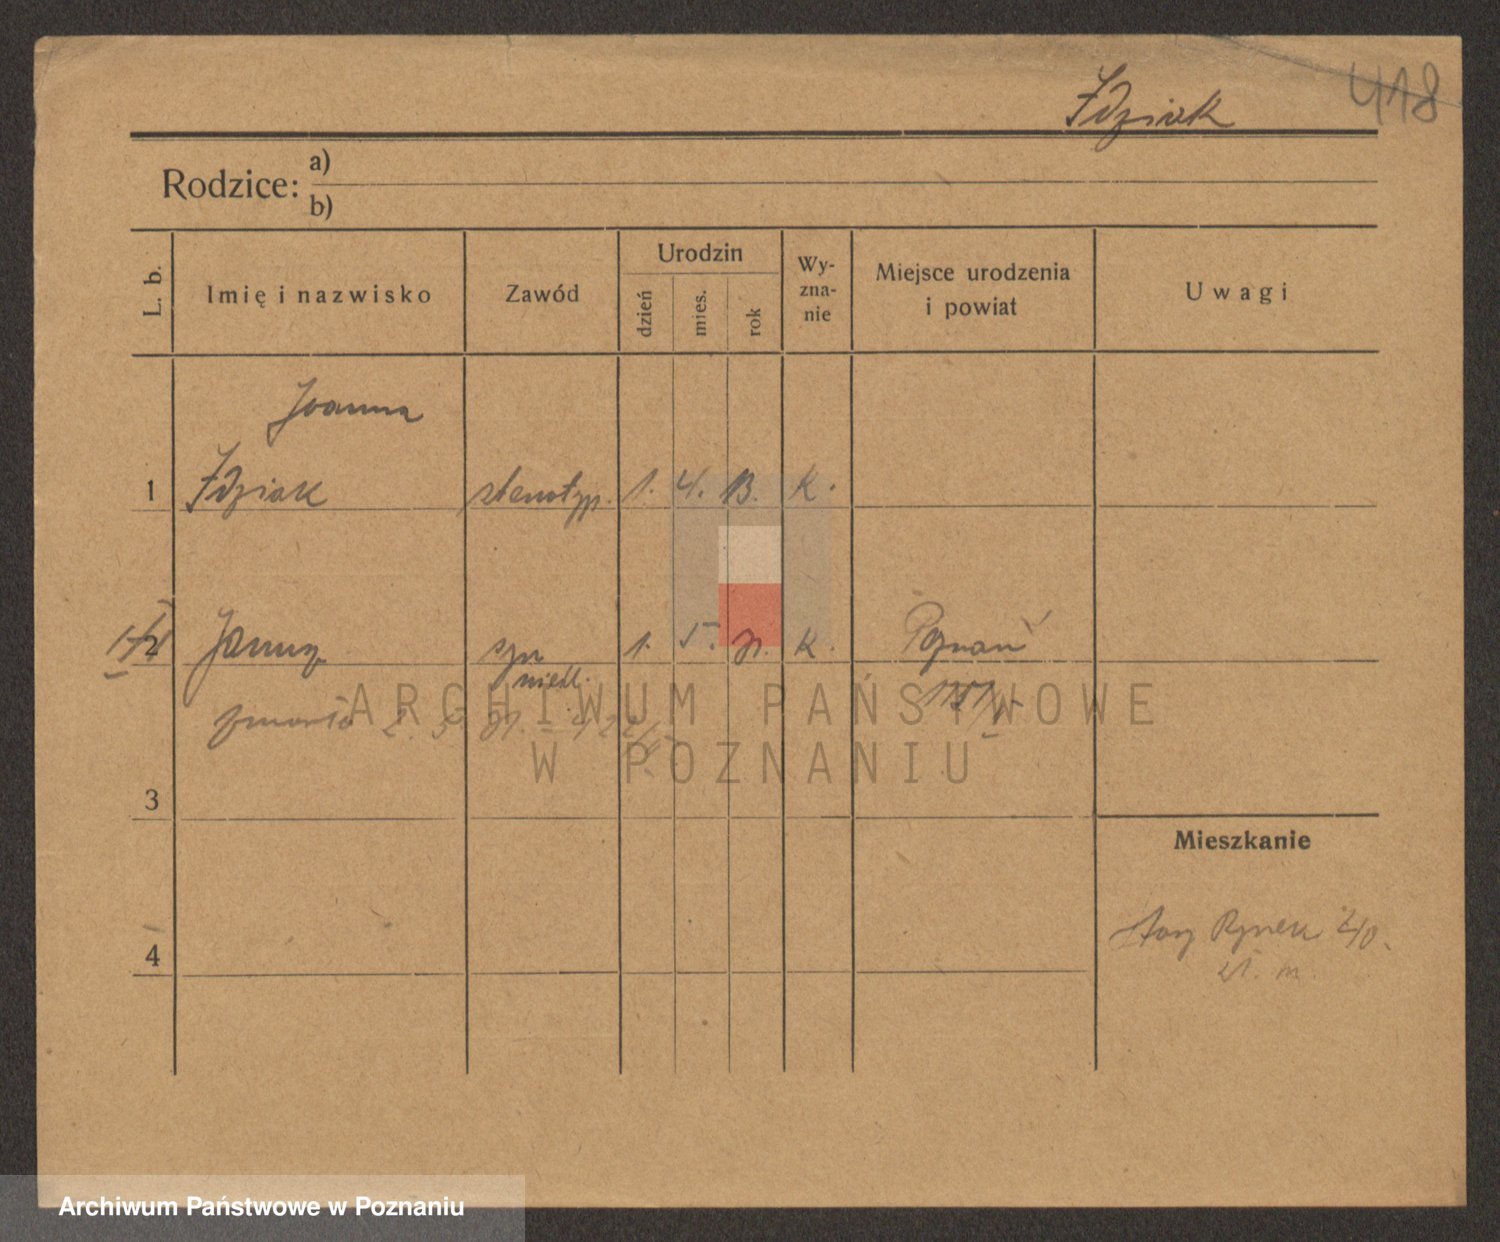 418
Idziak
Rodzice: a)
b)
L. b.
Imię i nazwisko
Zawód
Urodzin
dzień
mies.
rok
Wy-
zna-
nie
Miejsce urodzenia
i powiat
Uwagi
Joanna
1 Idziak stenotyp. 1. 4. 13. K.
2 Janusz syn 1. 5. 31. K. Poznań
nieśl.
zmarł 2. 5. 31.
3
4
Mieszkanie
Stary Rynek
ARCHIWUM PAŃSTWOWE
W POZNANIU
Archiwum Państwowe w Poznaniu